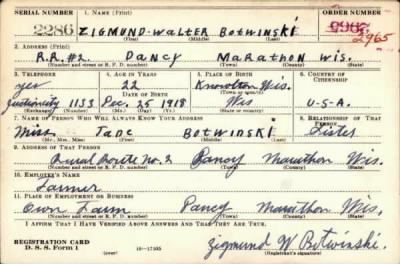 SERIAL NUMBER 1. NAME (Print) ORDER NUMBER
2286 ZIGMUND-WALTER BOTWINSKI 2965
(First) (Middle) (Last)
2. ADDRESS (Print)
R.R.#2. Dancy Marathon Wis.
(Number and street or R. F. D. number) (Town) (County) (State)
3. TELEPHONE 4. AGE IN YEARS 5. PLACE OF BIRTH 6. COUNTRY OF CITIZENSHIP
yes 22 Knowlton Wis.
DATE OF BIRTH
1133 Dec. 25 1918 Wis U-S-A.
(Exchange) (Number) (Mo.) (Day) (Yr.) (State or country)
7. NAME OF PERSON WHO WILL ALWAYS KNOW YOUR ADDRESS 8. RELATIONSHIP OF THAT PERSON
Miss Jane Botwinski Sister
(Mr., Mrs., Miss) (First) (Middle) (Last)
9. ADDRESS OF THAT PERSON
Rural Route No. 2 Dancy Marathon Wis.
(Number and street or R. F. D. number) (Town) (County) (State)
10. EMPLOYER'S NAME
Farmer
11. PLACE OF EMPLOYMENT OR BUSINESS
Own Farm Dancy Marathon Wis.
(Number and street or R. F. D. number) (Town) (County) (State)
I AFFIRM THAT I HAVE VERIFIED ABOVE ANSWERS AND THAT THEY ARE TRUE.
REGISTRATION CARD
D. S. S. Form 1 16-17105 Zigmund W Botwinski.
(over) (Registrant's signature)